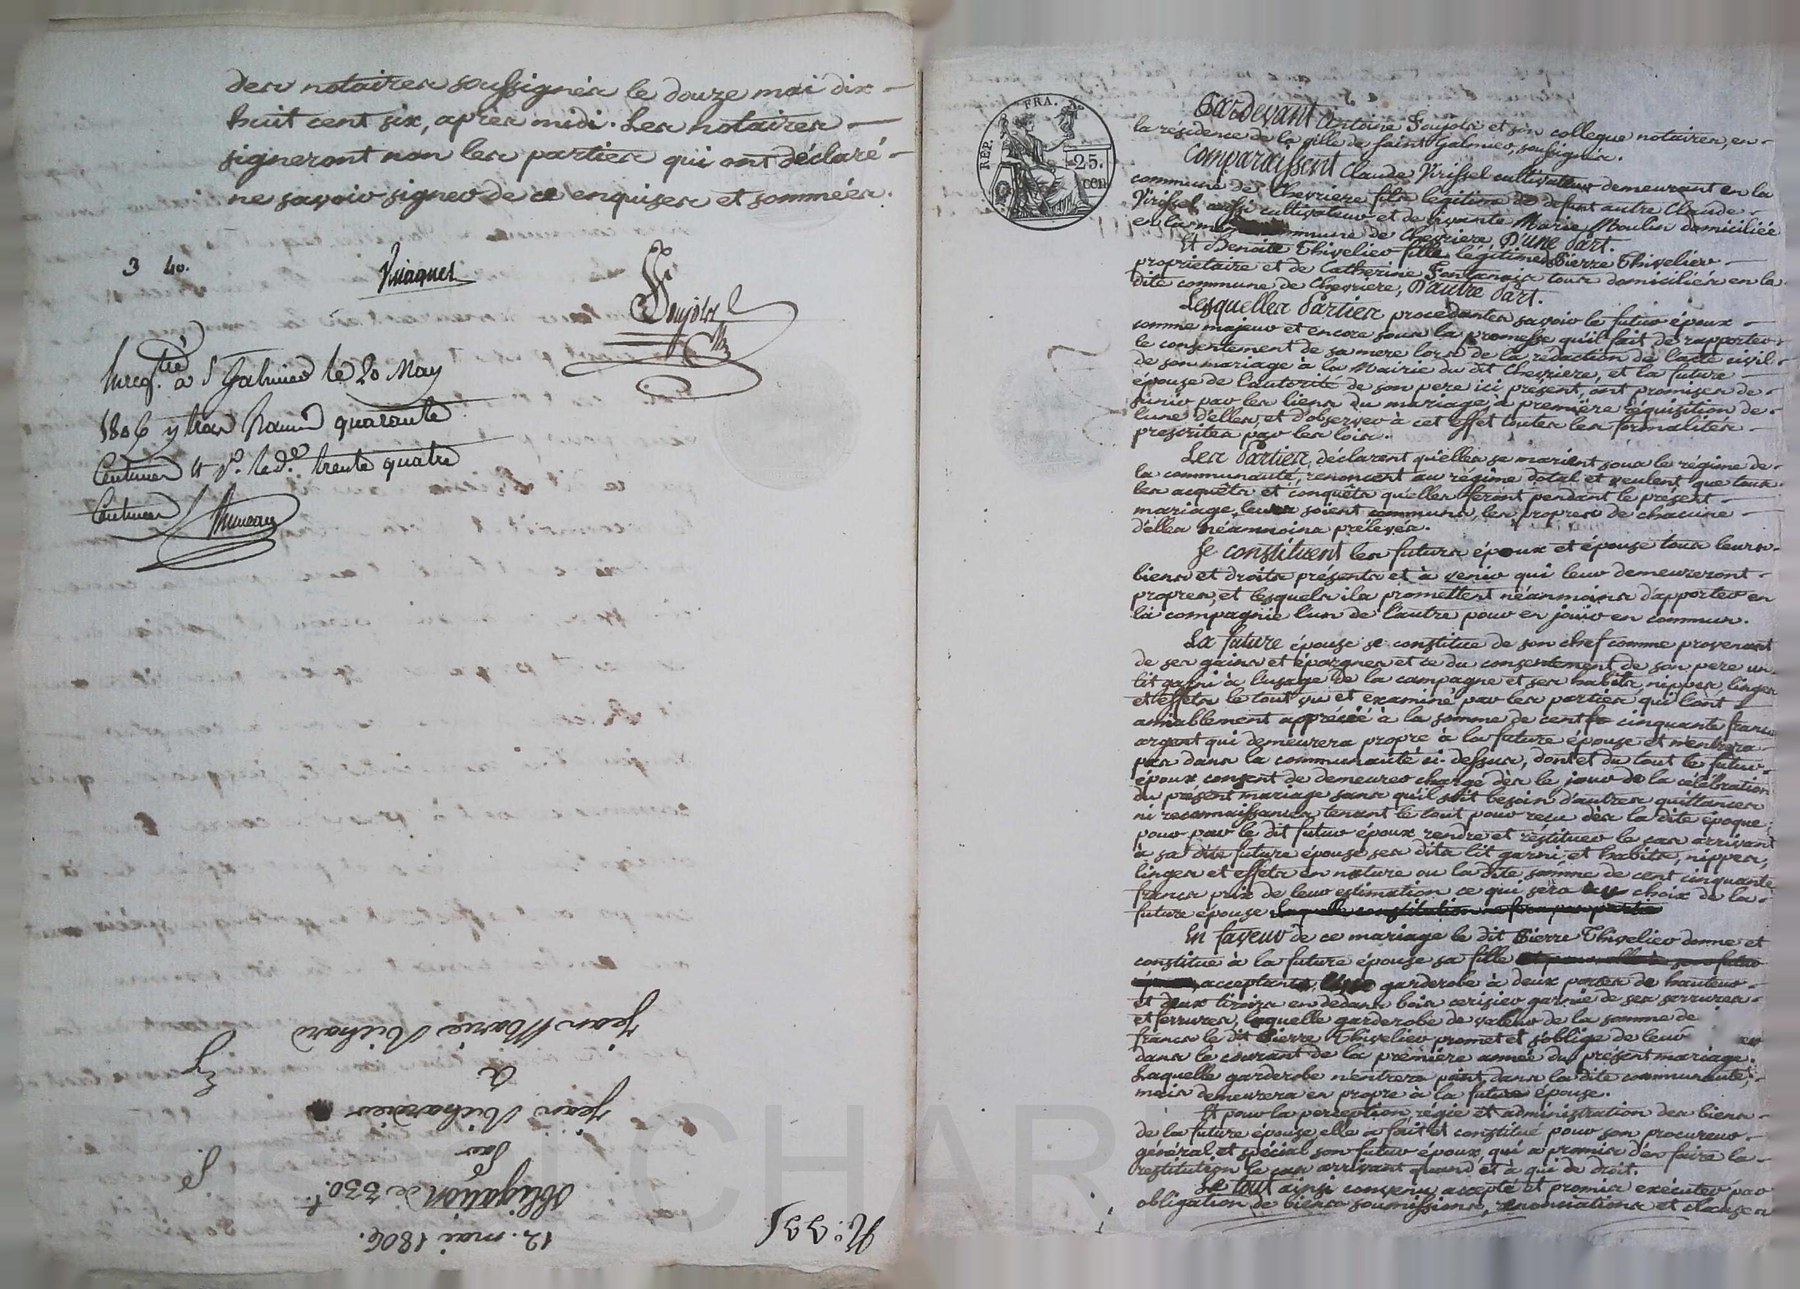 des notaires soussignés le douze mai dix-
huit cent six, après midi. Les notaires
signeront non les parties qui ont déclaré
ne savoir signer de ce enquises et sommées.
3 40.
Enregtré à St Galmier le 20 May
1806 quarante
Centimes trente quatre
Centimes
N.° 335
12. mai 1806.
Obligation de 330.f
Par
Jean Richardier
à
Jean Marie Richard
REP. FRA.
25.
cen.
Pardevant Antoine Poujols et son collegue notaires, en
la résidence de la ville de saint Galmier, soussignés.
Comparaissent Claude Virissel cultivateur demeurant en la
commune de Chevriere fils légitime de defunt autre Claude
Virissel, aussi cultivateur et de vivante Marie Moulin domiciliée
en la commune de Chevriere, D'une Part.
Et Benoite Thivelier fille légitime de Pierre Thivelier
propriétaire et de Catherine Fontanais tous domiciliés en la
dite commune de Chevriere, D'autre Part.
Lesquelles Parties procédantes savoir le futur époux
comme majeur et encore sous la promesse qu'il fait de rapporter
le consentement de sa mere lors de la rédaction de l'acte civil
de son mariage à la Mairie du dit Chevriere, et la future
épouse de l'autorité de son pere ici présent, ont promises de
s'unir par les liens du mariage, à première réquisition de
l'une d'elles, et d'observer à cet effet toutes les formalités
prescrites par les lois.
Les Parties déclarent qu'elles se marient sous le régime de
la communauté, renoncent au régime dotal et veulent que tous
les acquêts et conquêts qu'elles feront pendant le présent
mariage, leurs soient communs, les propres de chacune
d'elles néanmoins prélevés.
Se constituent les futurs époux et épouse tous leurs
biens et droits présents et à venir qui leur demeureront
propres, et lesquels ils promettent néanmoins d'apporter en
la compagnie l'un de l'autre pour en jouir en commun.
La future épouse se constitue de son chef comme provenant
de ses gains et épargnes et ce du consentement de son pere un
lit garni à l'usage de la campagne et ses habits, nippes, linges
et effets le tout vu et examiné par les parties qui l'ont
amiablement apprécié à la somme de cent cinquante francs
argent qui demeurera propre à la future épouse et n'entrera
pas dans la communauté ci-dessus, dont et du tout le futur
époux consent de demeurer chargé dès le jour de la célébration
du présent mariage sans qu'il soit besoin d'autres quittances
ni reconnaissances tenant le tout pour reçu dès la dite époque,
pour par le dit futur époux rendre et restituer le cas arrivant
à sa dite future épouse ses dits lit garni et habits, nippes,
linges et effets en nature ou la dite somme de cent cinquante
francs prix de leur estimation ce qui sera au choix de la
future épouse laquelle constitution ne fera pas partie
En faveur de ce mariage le dit Pierre Thivelier donne et
constitue à la future épouse sa fille
acceptante, garderobe à deux portes de hauteur
et deux tiroirs en dedans bois cerisier garnie de ses serrures
et ferrures, laquelle garderobe de valeur de la somme de
francs le dit Pierre Thivelier promet et s'oblige de leur
dans le courant de la première année du présent mariage.
Laquelle garderobe n'entrera point dans la dite communauté,
mais demeurera en propre à la future épouse.
Et pour la perception régie et administration des biens
de la future épouse elle a fait et constitué pour son procureur
général et spécial son futur époux, qui a promis d'en faire la
restitution le cas arrivant quand et à qui de droit.
Le tout ainsi convenu accepté et promis exécuter par
obligation de biens soumissions, renonciations et clauses